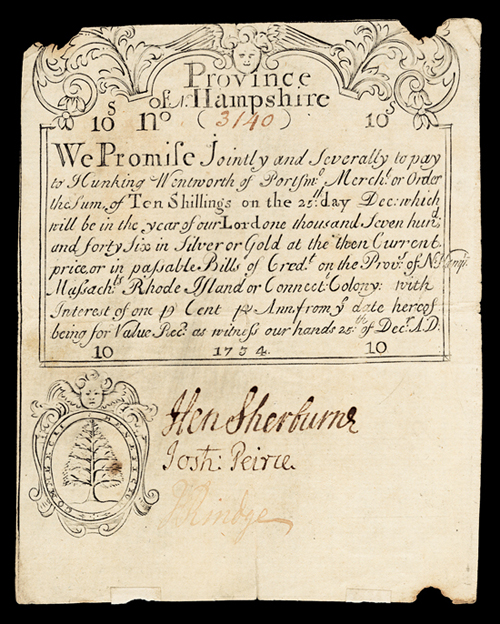 Province
of N. Hampshire
10 S No (3140) 10 S
We Promise Jointly and Severally to pay
to Hunking Wentworth of Portsmo. Mercht. or Order
the Sum of Ten Shillings on the 25th day Decr. which
will be in the year of our Lord one thousand Seven hund
and forty Six in Silver or Gold at the then Current
price, or in passable Bills of Credt. on the Prove. of N. Hampr.
Massachts Rhode Island or Connectt. Colony: with
Interest of one p Cent p Ann. from ye date hereof
being for Value Recd. as witness our hands 25th of Decr. A.D:
10 1734. 10
Hen Sherburne
Josh: Peirce
J Rindge